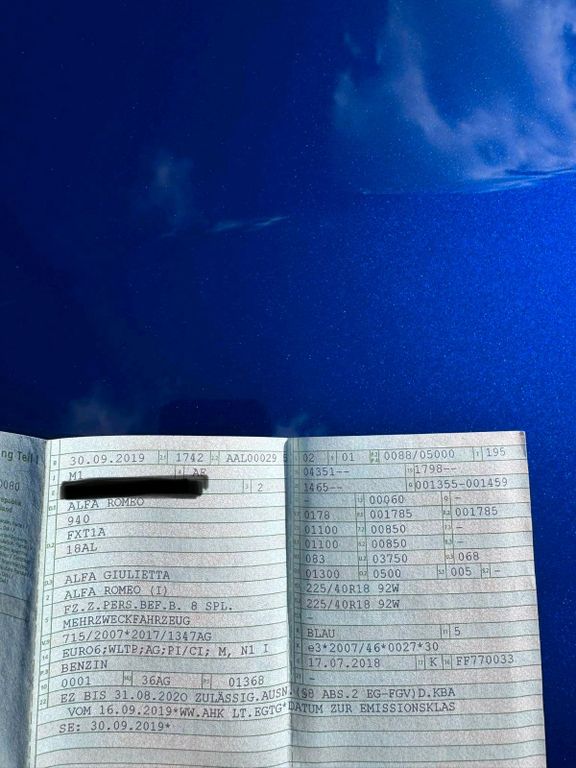 ng Teil I
0080
30.09.2019 1742 AAL00029 5
M1 AF
2
ALFA ROMEO
940
FXT1A
18AL
ALFA GIULIETTA
ALFA ROMEO (I)
FZ.Z.PERS.BEF.B. 8 SPL.
MEHRZWECKFAHRZEUG
715/2007*2017/1347AG
EURO6;WLTP;AG;PI/CI; M, N1 I
BENZIN
0001 36AG 01368
02 01 0088/05000 195
04351-- 1798--
1465-- 001355-001459
00060 -
0178 001785 001785
01100 00850 -
01100 00850 -
083 03750 068
01300 0500 005 -
225/40R18 92W
225/40R18 92W
-
BLAU 5
e3*2007/46*0027*30
17.07.2018 K FF770033
-
EZ BIS 31.08.2020 ZULÄSSIG.AUSN.(§8 ABS.2 EG-FGV)D.KBA
VOM 16.09.2019*WW.AHK LT.EGTG*DATUM ZUR EMISSIONSKLAS
SE: 30.09.2019*